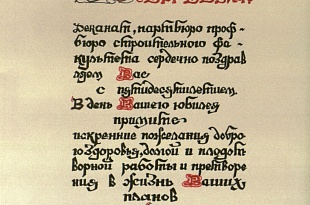 Деканат, партбюро проф-
бюро строительного фа-
культета сердечно поздрав
ляем Вас
с пятидесятилетием.
В день Вашего юбилея
примите
искренние пожелания добро-
го здоровья, долгой и плодот-
ворной работы и претворе-
ния в жизнь Ваших
планов